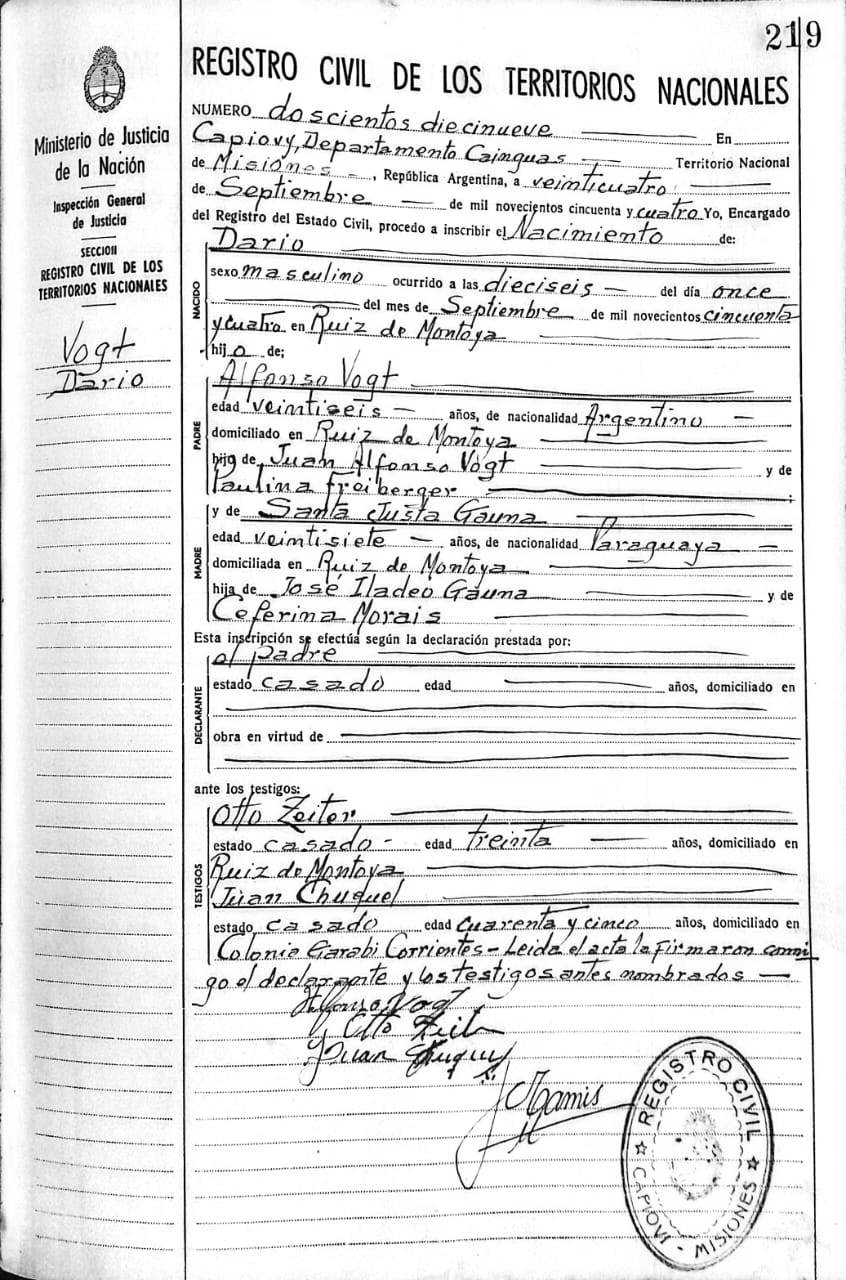 219
Ministerio de Justicia
de la Nación
Inspección General
de Justicia
SECCION
REGISTRO CIVIL DE LOS
TERRITORIOS NACIONALES
Vogt
Dario
REGISTRO CIVIL DE LOS TERRITORIOS NACIONALES
NUMERO doscientos diecinueve En
Capiovy, Departamento Cainguas Territorio Nacional
de Misiones -, República Argentina, a veinticuatro
de Septiembre de mil novecientos cincuenta y cuatro Yo, Encargado
del Registro del Estado Civil, procedo a inscribir el Nacimiento de:
NACIDO
Dario
sexo masculino ocurrido a las dieciseis — del día once
del mes de Septiembre de mil novecientos cincuenta
y cuatro en Ruiz de Montoya
hijo de;
PADRE
Alfonso Vogt
edad veintiseis — años, de nacionalidad Argentino —
domiciliado en Ruiz de Montoya
hijo de Juan Alfonso Vogt y de
Paulina Freiberger ;
MADRE
y de Santa Justa Gauna
edad veintisiete — años, de nacionalidad Paraguaya —
domiciliada en Ruiz de Montoya
hija de José Iladeo Gauna y de
Ceferina Morais
Esta inscripción se efectúa según la declaración prestada por:
DECLARANTE
el padre
estado casado edad años, domiciliado en
obra en virtud de
ante los testigos:
TESTIGOS
Otto Zeiter
estado casado - edad treinta años, domiciliado en
Ruiz de Montoya
Juan Chuquel
estado casado edad cuarenta y cinco años, domiciliado en
Colonia Garabi Corrientes - Leida el acta la firmaron conmi
go el declarante y los testigos antes nombrados —
Alfonso Vogt
Otto
Juan
REGISTRO CIVIL
CAPIOVI - MISIONES